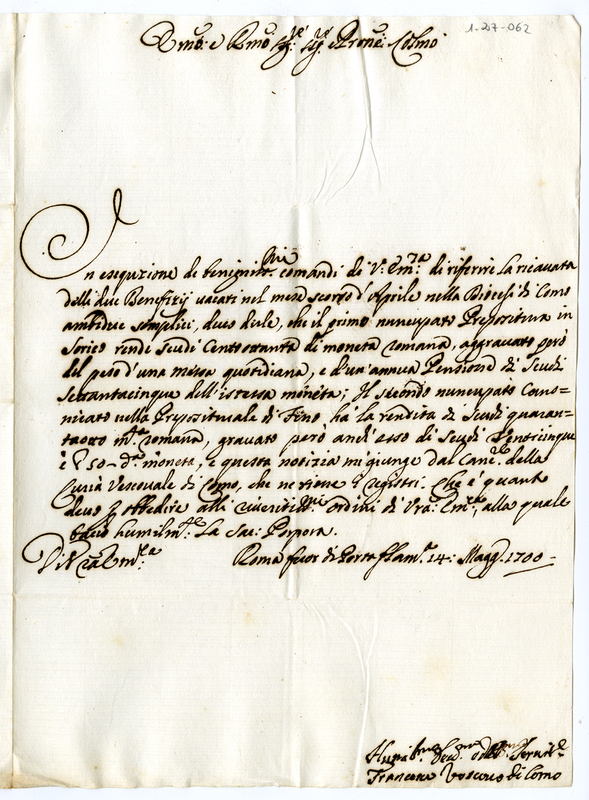 1-27-062
Em.º e R.mo Sig.re Sig.re e Prone Colmo
In esequzione de benigniss.mi comandi di V: Em.za di riferire la ricavata
delli due Benefitij vacati nel mese scorso d'Aprile nella Diocesi di Como
ambidue semplici, devo dirle, che il primo nuncupato Prepositura in
Sorico rendi Scudi Centottanta di moneta romana, aggravato però
del peso d'una messa quotidiana, e d'un'annua Pensione di Scudi
Settantacinque dell'istessa monéta; Il secondo nuncupato Cano=
nicato nella Prepositurale di Fino, hà la rendita di Scudi quaran=
taotto m.ta romana, gravato però anch'esso di Scudi Venticinque
è 50 - d.ta moneta, e questa notizia mi giunge dal Canc.re della
Curia Vescovale di Como, che ne tiene i registri. Che è quanto
devo p obbedire alli riveritiss.mi ordini di Vra: Em.za, alla quale
bacio humilm.te La Sac: Porpora.
Di V'ra Em.za Roma fuor di Porta flam.a 14: Magg.o 1700 -
Humil.mo Dev.mo Obbl.mo Servit.e
Francesco Vescovo di Como